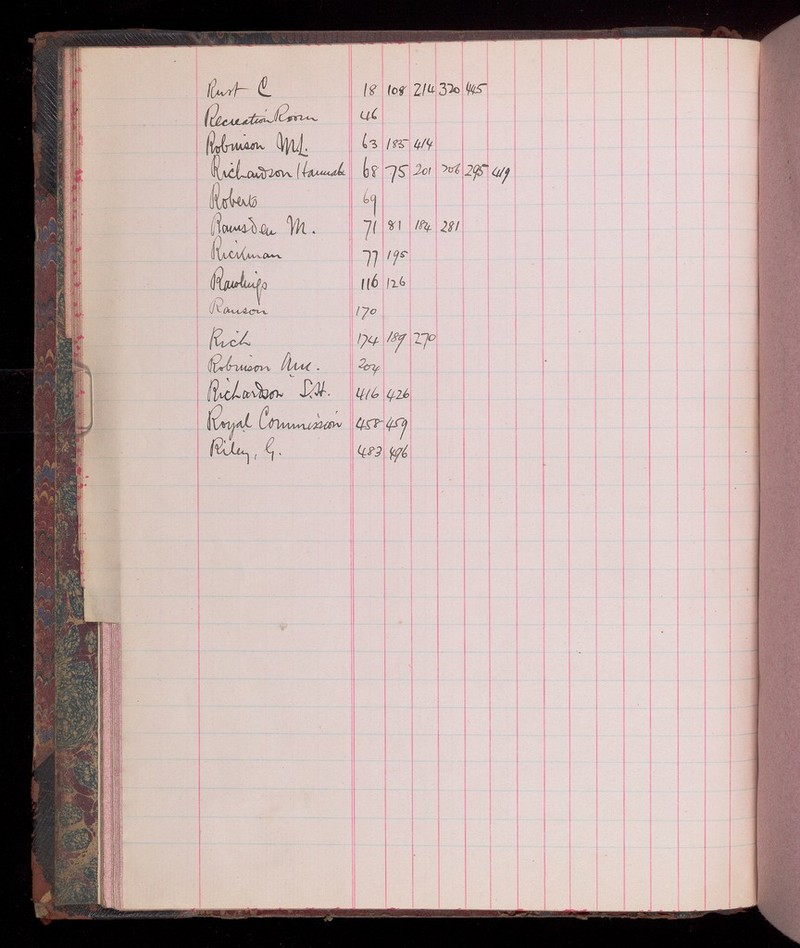 Rust C 18 108 214 320 445
Recreation Room 46
Robinson M.L. 63 185 414
Richardson Hannah 68 75 201 206 295 419
Roberts 69
Ramsden M. 71 81 184 281
Rickman 77 195
Rawlings 116 126
Ranson 170
Rich 174 189 270
Robinson 204
Richardson S.H. 416 426
Royal Commission 458 459
Riley, G. 483 496